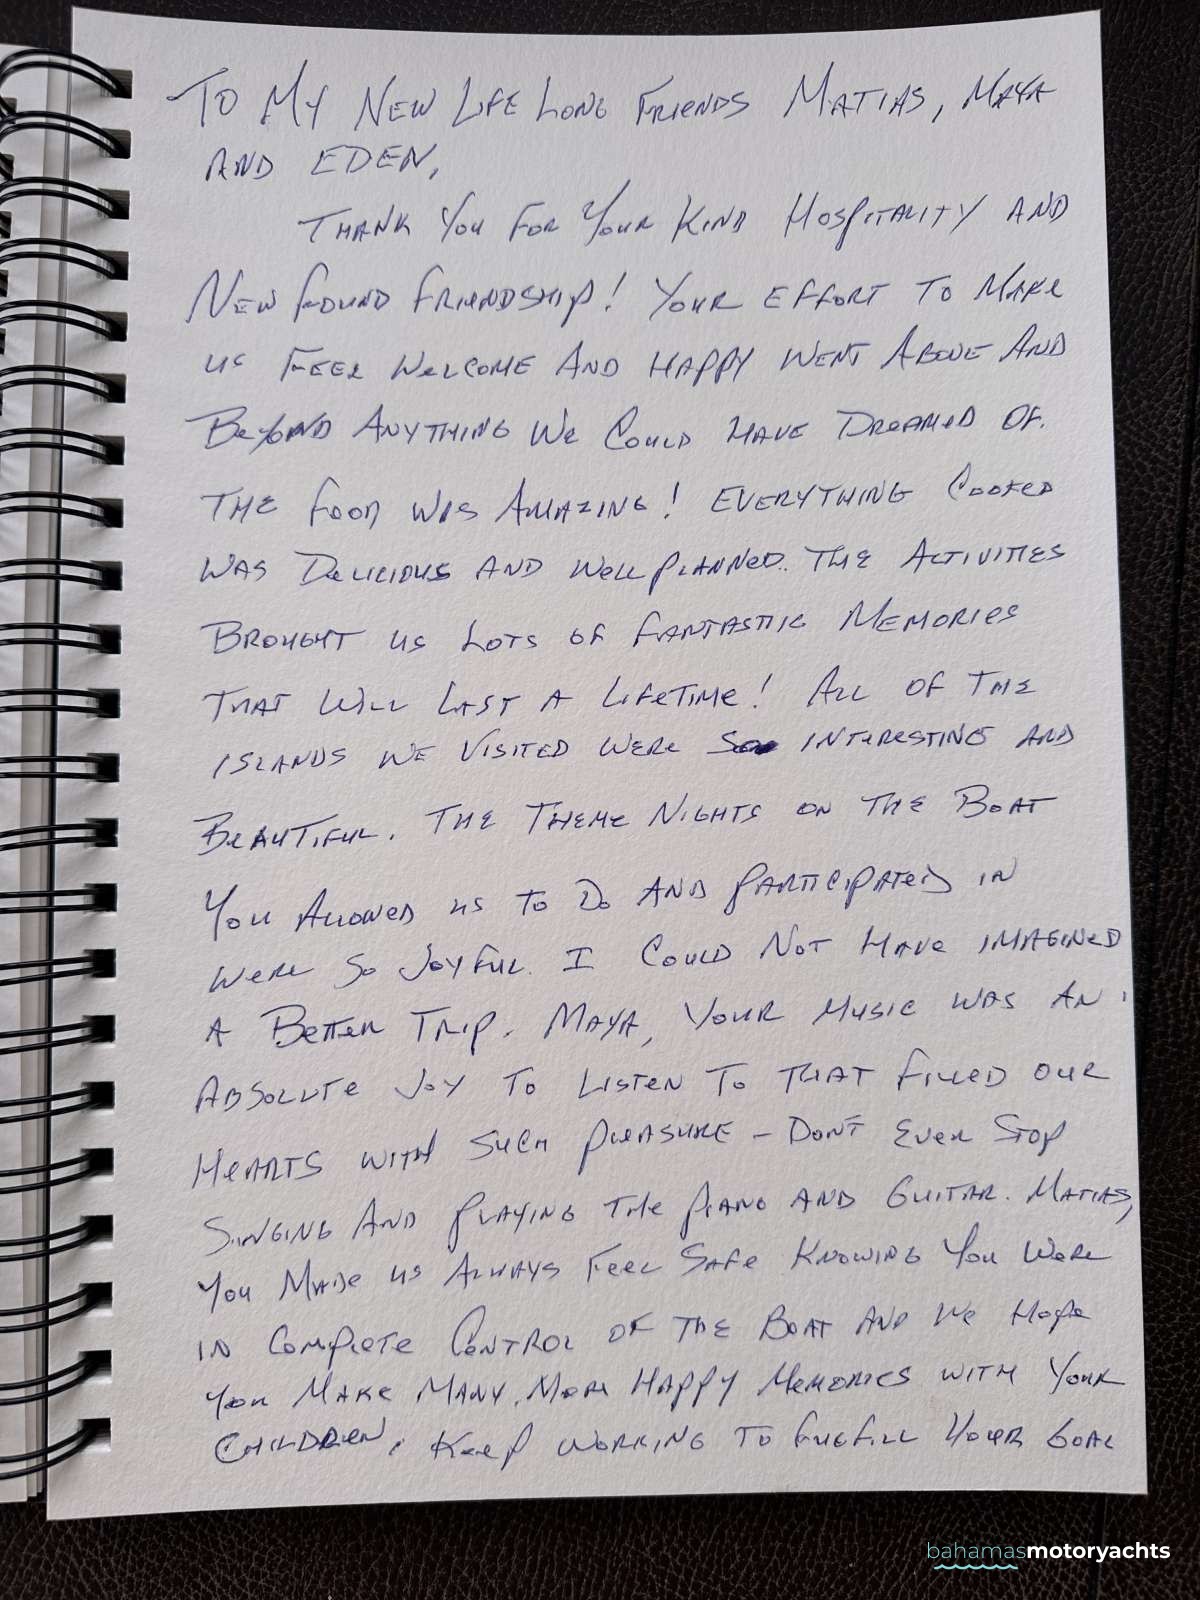 TO MY NEW LIFE LONG FRIENDS MATIAS, MAYA
AND EDEN,
THANK YOU FOR YOUR KIND HOSPITALITY AND
NEW FOUND FRIENDSHIP! YOUR EFFORT TO MAKE
US FEEL WELCOME AND HAPPY WENT ABOVE AND
BEYOND ANYTHING WE COULD HAVE DREAMED OF.
THE FOOD WAS AMAZING! EVERYTHING COOKED
WAS DELICIOUS AND WELL PLANNED. THE ACTIVITIES
BROUGHT US LOTS OF FANTASTIC MEMORIES
THAT WILL LAST A LIFETIME! ALL OF THE
ISLANDS WE VISITED WERE SO INTERESTING AND
BEAUTIFUL. THE THEME NIGHTS ON THE BOAT
YOU ALLOWED US TO DO AND PARTICIPATED IN
WERE SO JOYFUL. I COULD NOT HAVE IMAGINED
A BETTER TRIP. MAYA, YOUR MUSIC WAS AN
ABSOLUTE JOY TO LISTEN TO THAT FILLED OUR
HEARTS WITH SUCH PLEASURE - DON'T EVER STOP
SINGING AND PLAYING THE PIANO AND GUITAR. MATIAS,
YOU MADE US ALWAYS FEEL SAFE KNOWING YOU WERE
IN COMPLETE CONTROL OF THE BOAT AND WE HOPE
YOU MAKE MANY MORE HAPPY MEMORIES WITH YOUR
CHILDREN. KEEP WORKING TO FULFILL YOUR GOAL
bahamasmotoryachts